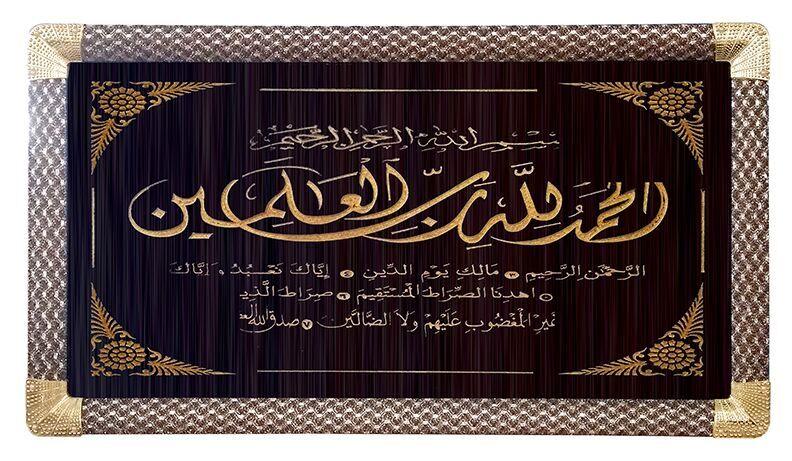 بسم الله الرحمن الرحيم
الحمد لله رب العلمين
الرَّحْمٰنِ الرَّحِيمِ ٣ مَالِكِ يَوْمِ الدِّينِ ٤ إِيَّاكَ نَعْبُدُ وَإِيَّاكَ
٥ اهْدِنَا الصِّرَاطَ الْمُسْتَقِيمَ ٦ صِرَاطَ الَّذِي
غَيْرِ الْمَغْضُوبِ عَلَيْهِمْ وَلَا الضَّالِّينَ ٧ صدق الله